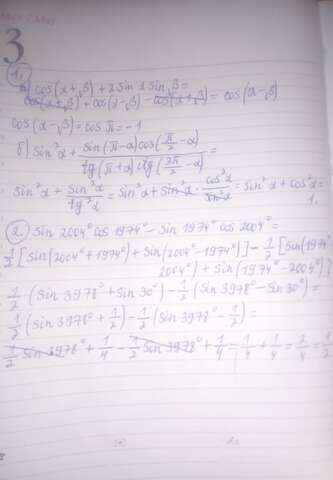 3
1.
a) cos(α+β) + 2 sin α sin β =
cos(α+β) + cos(α-β) - cos(α+β) = cos(α-β)
cos(α-β) = cos π = -1
б) sin²α + sin(π-α)cos(π/2-α) / tg(π+α)ctg(3π/2-α) =
sin²α + sin²α/tg²α = sin²α + sin²α · cos²α/sin²α = sin²α + cos²α =
1.
2. Sin 2004° cos 1974° - Sin 1974° cos 2004° =
1/2 [Sin(2004°+1974°) + Sin(2004°-1974°)] - 1/2 [Sin(1974°+
2004°) + Sin(1974°-2004°)]
1/2 (Sin 3978° + Sin 30°) - 1/2 (Sin 3978° - Sin 30°) =
1/2 (Sin 3978° + 1/2) - 1/2 (Sin 3978° - 1/2) =
1/2 Sin 3978° + 1/4 - 1/2 Sin 3978° + 1/4 = 1/4 + 1/4 = 2/4 = 1/2